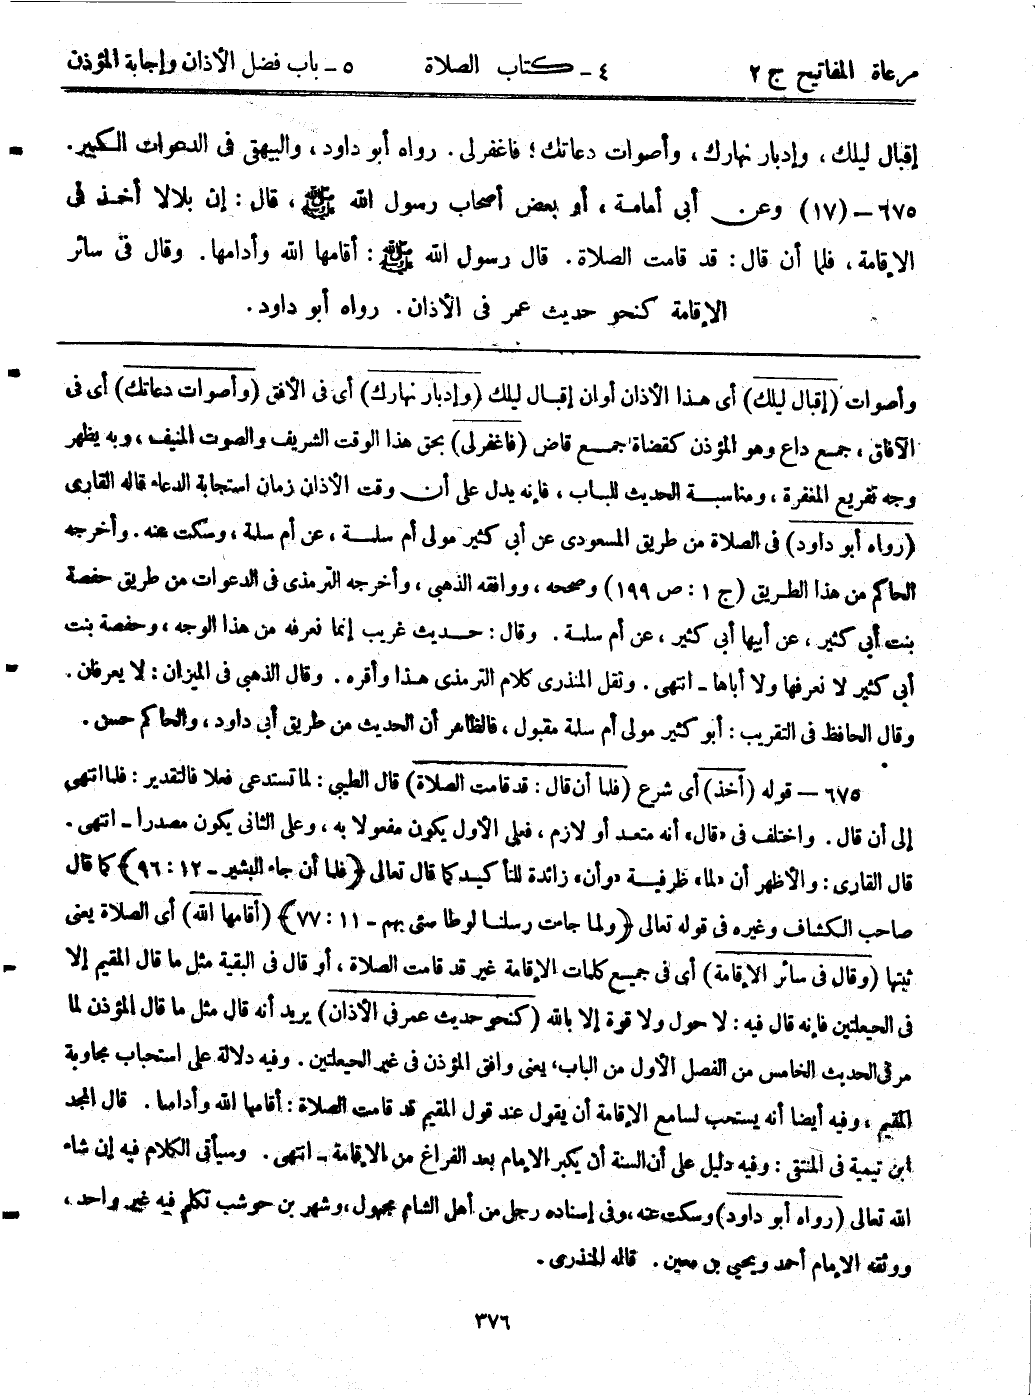 مرعاة المفاتيح ج ٢ ٤ - كتاب الصلاة ٥ - باب فضل الأذان وإجابة المؤذن
إقبال ليلك، وإدبار نهارك، وأصوات دعاتك؛ فاغفرلى. رواه أبو داود، والبيهقى فى الدعوات الكبير.
٦٧٥ - (١٧) وعن أبى أمامة، أو بعض أصحاب رسول الله ﷺ، قال: إن بلالا أخذ فى
الإقامة، فلما أن قال: قد قامت الصلاة. قال رسول الله ﷺ: أقامها الله وأدامها. وقال فى سائر
الإقامة كنحو حديث عمر فى الأذان. رواه أبو داود.
وأصوات (إقبال ليلك) أى هـذا الأذان أوان إقبـال ليلك (وإدبار نهارك) أى فى الأفق (وأصوات دعاتك) أى فى
الآفاق، جمع داع وهو المؤذن كقضاة جمع قاض (فاغفرلى) بحق هذا الوقت الشريف والصوت المنيف، وبه يظهر
وجه تفريع المغفرة، ومناسبة الحديث للباب، فإنه يدل على أن وقت الأذان زمان استجابة الدعاء قاله القارى
(رواه أبو داود) فى الصلاة من طريق المسعودى عن أبى كثير مولى أم سلمة، عن أم سلمة، وسكت عنه. وأخرجه
الحاكم من هذا الطريق (ج ١ : ص ١٩٩) وصححه، ووافقه الذهبى، وأخرجه الترمذى فى الدعوات من طريق حفصة
بنت أبى كثير، عن أبيها أبى كثير، عن أم سلمة. وقال: حديث غريب إنما نعرفه من هذا الوجه، وحفصة بنت
أبى كثير لا نعرفها ولا أباها - انتهى. ونقل المنذرى كلام الترمذى هـذا وأقره. وقال الذهبى فى الميزان: لا يعرفان.
وقال الحافظ فى التقريب: أبو كثير مولى أم سلمة مقبول، فالظاهر أن الحديث من طريق أبى داود، والحاكم حسن.
٦٧٥ - قوله (أخذ) أى شرع (فلما أن قال: قد قامت الصلاة) قال الطيبى: لما تستدعى فعلا فالتقدير: فلما انتهى
إلى أن قال. واختلف فى «قال» أنه متعد أو لازم، فعلى الأول يكون مفعولا به، وعلى الثانى يكون مصدرا - انتهى.
قال القارى: والأظهر أن «لما» ظرفية «وأن» زائدة للتأكيد كما قال تعالى ﴿فلما أن جاء البشير - ١٢ : ٩٦﴾ كما قال
صاحب الكشاف وغيره فى قوله تعالى ﴿ولما جاءت رسلنا لوطا سىء بهم - ١١ : ٧٧﴾ (أقامها الله) أى الصلاة يعنى
ثبتها (وقال فى سائر الإقامة) أى فى جميع كلمات الإقامة غير قد قامت الصلاة، أو قال فى البقية مثل ما قال المقيم إلا
فى الحيعلتين فإنه قال فيه: لا حول ولا قوة إلا بالله (كنحو حديث عمر فى الأذان) يريد أنه قال مثل ما قال المؤذن لما
مر فى الحديث الخامس من الفصل الأول من الباب، يعنى وافق المؤذن فى غير الحيعلتين. وفيه دلالة على استحباب مجاوبة
المقيم، وفيه أيضا أنه يستحب لسامع الإقامة أن يقول عند قول المقيم قد قامت الصلاة: أقامها الله وأدامها. قال المجد
ابن تيمية فى المنتقى: وفيه دليل على أن السنة أن يكبر الإمام بعد الفراغ من الإقامة - انتهى. وسيأتى الكلام فيه إن شاء
الله تعالى (رواه أبو داود) وسكت عنه، وفى إسناده رجل من أهل الشام مجهول، وشهر بن حوشب تكلم فيه غير واحد،
ووثقه الإمام أحمد ويحيى بن معين. قاله المنذرى.
٣٧٦